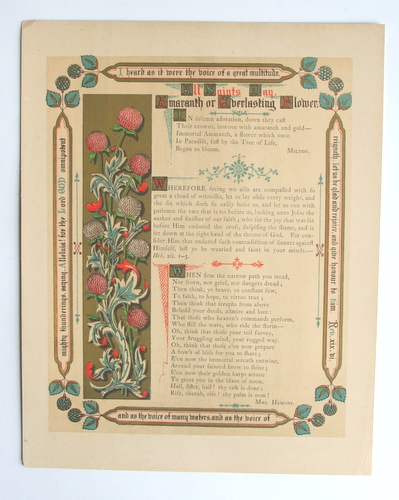 I heard as it were the voice of a great multitude,
and as the voice of many waters, and as the voice of
mighty thunderings, saying, Alleluia! for the Lord GOD omnipotent
reigneth. let us be glad and rejoice and give honour to Him. Rev. xix.
All Saints Day.
Amaranth or Everlasting Flower.
IN solemn adoration, down they cast
Their crowns, inwove with amaranth and gold—
Immortal Amaranth, a flower which once
In Paradise, fast by the Tree of Life,
Began to bloom. MILTON.
WHEREFORE seeing we also are compassed with so
great a cloud of witnesses, let us lay aside every weight, and
the sin which doth so easily beset us, and let us run with
patience the race that is set before us, looking unto Jesus the
author and finisher of our faith; who for the joy that was set
before Him endured the cross, despising the shame, and is
set down at the right hand of the throne of God. For con-
sider Him that endured such contradiction of sinners against
Himself, lest ye be wearied and faint in your minds.—
Heb. xii. 1-3.
WHEN first the narrow path you tread,
Nor front, nor grief, nor dangers dread;
Then think, ye brave, ye constant few,
To faith, to hope, to virtue true;
Then think that seraphs from above
Behold your deeds, admire and love:
That those who heaven's commands perform,
Who still the wave, who ride the storm—
Oh, think that those your toil survey,
Your struggling mind, your rugged way.
Oh, think that those e'en now prepare
A bow'r of bliss for you to share;
E'en now the immortal wreath entwine,
Around your fainted brow to shine;
E'en now their golden harps attune
To greet you in the blaze of noon.
Hail, sister, hail! thy task is done;
Rise, cherub, rise! thy palm is won!
MRS. HEMANS.